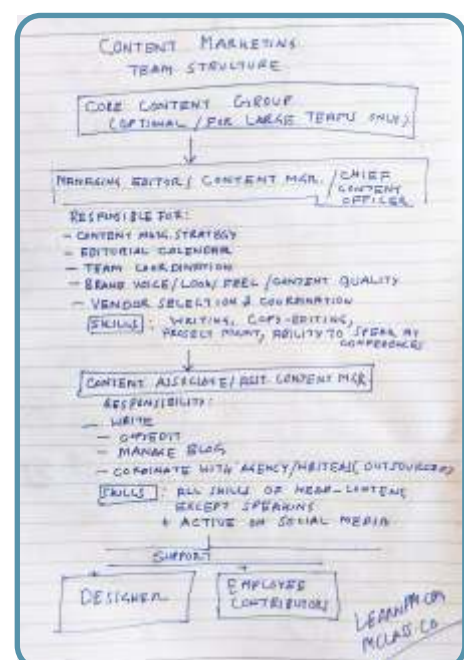 CONTENT MARKETING
TEAM STRUCTURE
CORE CONTENT GROUP
(OPTIONAL/FOR LARGE TEAMS ONLY)
MANAGING EDITOR/ CONTENT MGR. /CHIEF
CONTENT
OFFICER
RESPONSIBLE FOR:
- CONTENT MKTG. STRATEGY
- EDITORIAL CALENDAR
- TEAM COORDINATION
- BRAND VOICE/LOOK/FEEL/CONTENT QUALITY
- VENDOR SELECTION & COORDINATION
SKILLS : WRITING, COPY-EDITING,
PROJECT MGMT, ABILITY TO SPEAK AT
CONFERENCES
CONTENT ASSOCIATE/ASST. CONTENT MGR
RESPONSIBILITY:
- WRITE
- COPYEDIT
- MANAGE BLOG
- CORDINATE WITH AGENCY/WRITERS(OUTSOURCED)
SKILLS : ALL SKILLS OF HEAD-CONTENT
EXCEPT SPEAKING
+ ACTIVE ON SOCIAL MEDIA
SUPPORT
DESIGNER
EMPLOYEE
CONTRIBUTORS